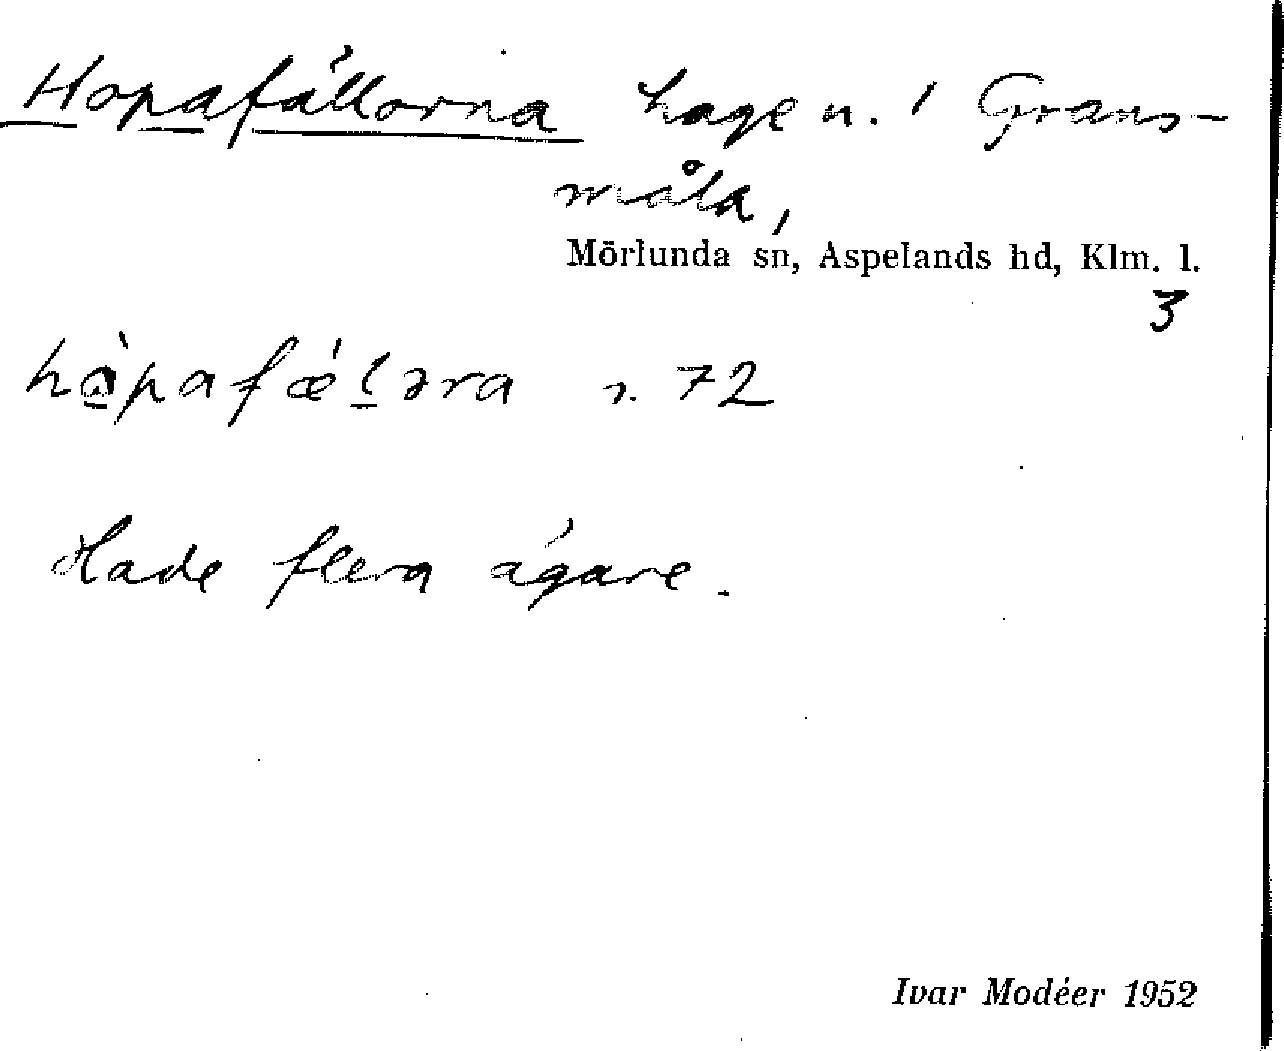 Hopafällorna hage n. i Grans-
måla,
Mörlunda sn, Aspelands hd, Klm. l.
3
hòpafǽlǝra s. 72
Hade flera ägare.
Ivar Modéer 1952